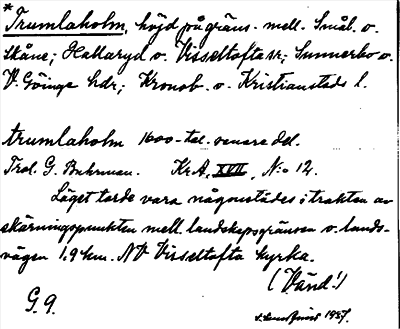 *Trumlaholm, höjd på gräns mell. Smål. o.
Skåne; Hallaryd o. Visseltofta sr; Sunnerbo o.
V. Göinge hdr; Kronob. o. Kristianstads l.
trumlaholm 1600-tal. senare del.
Trol. G. Buhrman. Kr.A. XVII, N:o 12.
Läget torde vara någonstädes i trakten av
skärningspunkten mell. landskapsgränsen o. lands-
vägen 1,9 km. NV Visseltofta kyrka.
(Vänd!)
G. 9. 1927.